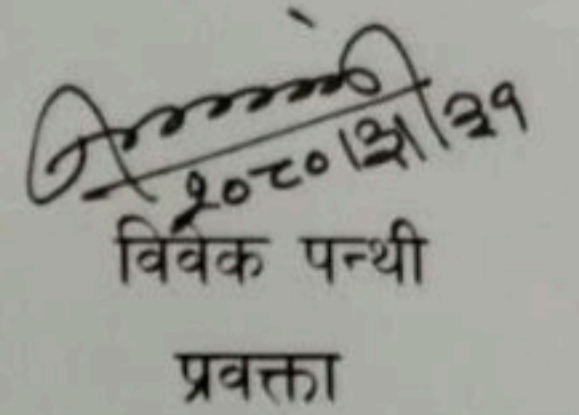 २०८०।३।३१
विवेक पन्थी
प्रवक्ता